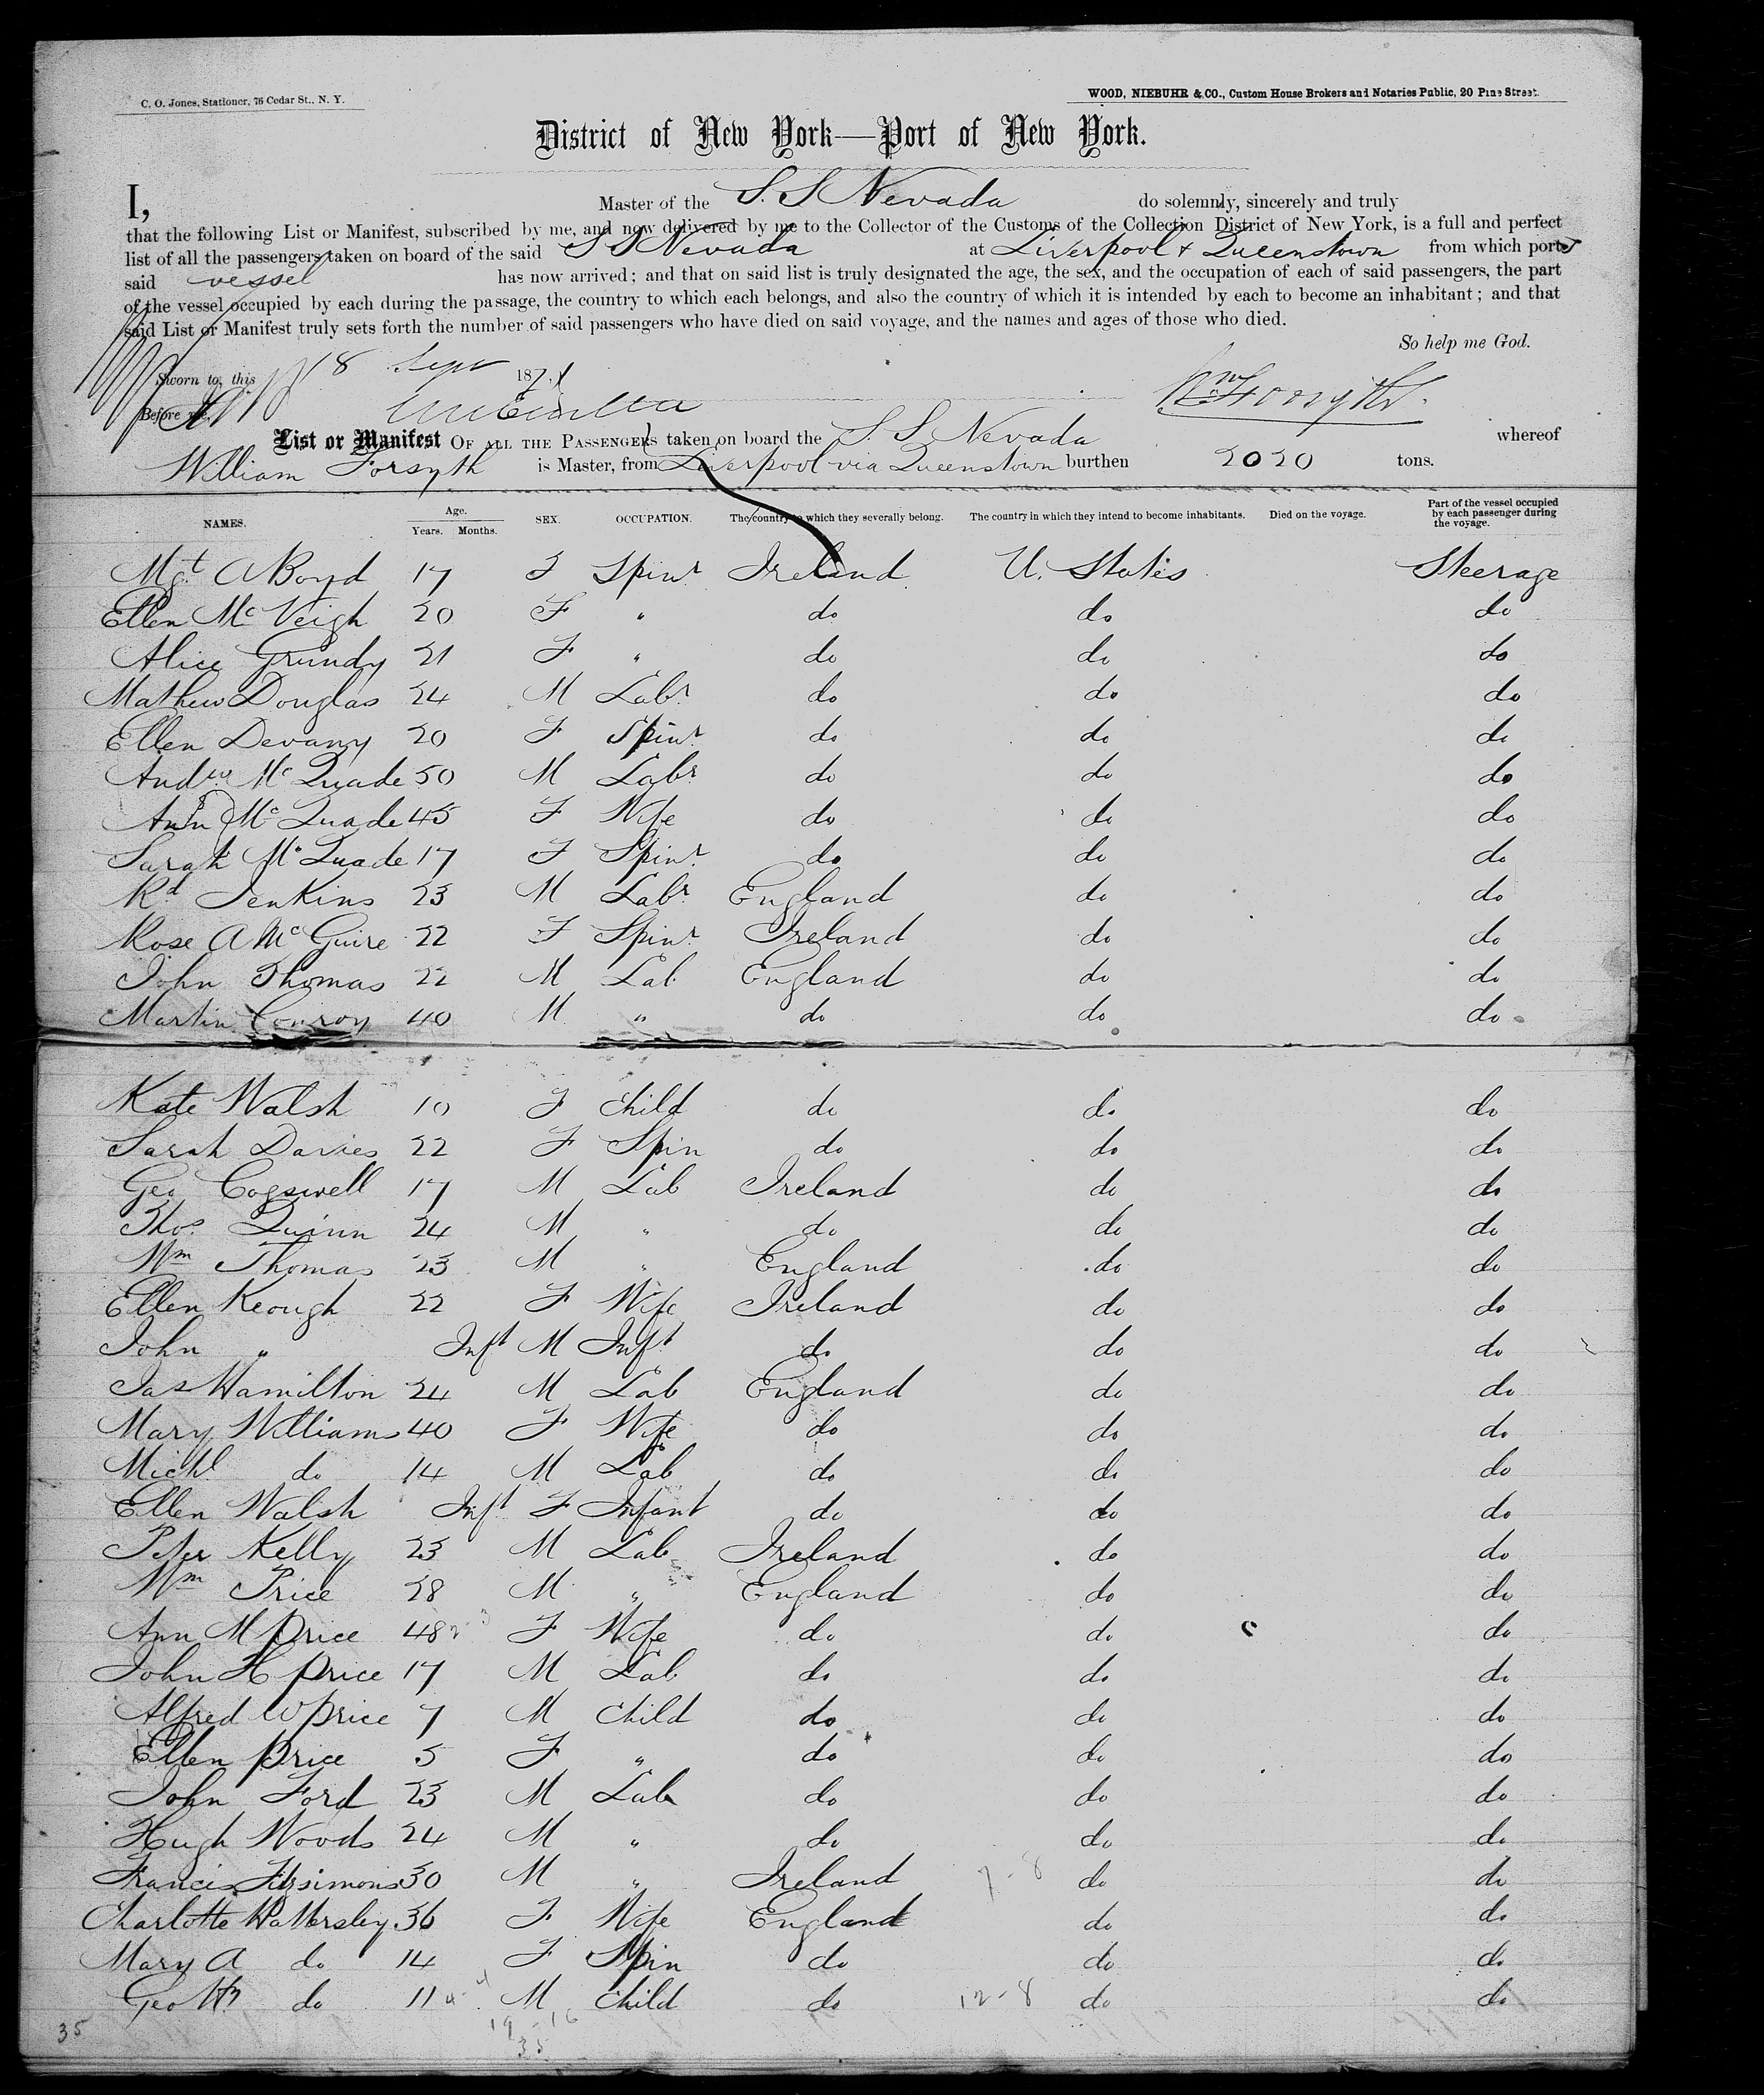 C. O. Jones, Stationer, 76 Cedar St., N. Y.
WOOD, NIEBUHR & CO., Custom House Brokers and Notaries Public, 20 Pine Street.
District of New York—Port of New York.
I, Master of the S. S Nevada do solemnly, sincerely and truly
that the following List or Manifest, subscribed by me, and now delivered by me to the Collector of the Customs of the Collection District of New York, is a full and perfect
list of all the passengers taken on board of the said S S Nevada at Liverpool & Queenstown from which ports
said vessel has now arrived; and that on said list is truly designated the age, the sex, and the occupation of each of said passengers, the part
of the vessel occupied by each during the passage, the country to which each belongs, and also the country of which it is intended by each to become an inhabitant; and that
said List or Manifest truly sets forth the number of said passengers who have died on said voyage, and the names and ages of those who died.
So help me God.
Sworn to, this 18 Sept 1871
Before me, Wm Forsyth.
List or Manifest OF ALL THE PASSENGERS taken on board the S. S. Nevada whereof
William Forsyth is Master, from Liverpool via Queenstown burthen 2020 tons.
NAMES. Age. Years. Months. SEX. OCCUPATION. The country to which they severally belong. The country in which they intend to become inhabitants. Died on the voyage. Part of the vessel occupied by each passenger during the voyage.
Mgt A Boyd 17 F Spinr Ireland U. States Steerage
Ellen McVeigh 20 F " do do do
Alice Grundy 21 F " do do do
Mathew Douglas 24 M Labr do do do
Ellen Devany 20 F Spinr do do do
Andw McQuade 50 M Labr do do do
Ann McQuade 45 F Wife do do do
Sarah McQuade 17 F Spinr do do do
Rd Jenkins 23 M Labr England do do
Rose A McGuire 22 F Spinr Ireland do do
John Thomas 22 M Lab England do do
Martin Conroy 40 M " do do do
Kate Walsh 10 F Child do do do
Sarah Davies 22 F Spin do do do
Geo Cogswell 17 M Lab Ireland do do
Thos. Quinn 24 M " do do do
Wm Thomas 23 M " England do do
Ellen Keough 22 F Wife Ireland do do
John " Inft M Inft do do do
Jas Hamilton 24 M Lab England do do
Mary Williams 40 F Wife do do do
Michl do 14 M Lab do do do
Ellen Walsh Inft F Infant do do do
Peter Kelly 23 M Lab Ireland do do
Wm Price 28 M " England do do
Ann M Price 48 F Wife do do do
John H Price 17 M Lab do do do
Alfred W Price 7 M Child do do do
Ellen Price 5 F " do do do
John Ford 23 M Lab do do do
Hugh Woods 24 M " do do do
Francis Fitzsimons 30 M " Ireland 7-8 do do
Charlotte Wattersley 36 F Wife England do do
Mary A do 14 F Spin do do do
Geo Wm do 11 M Child do 12-8 do do
35 19-16
35